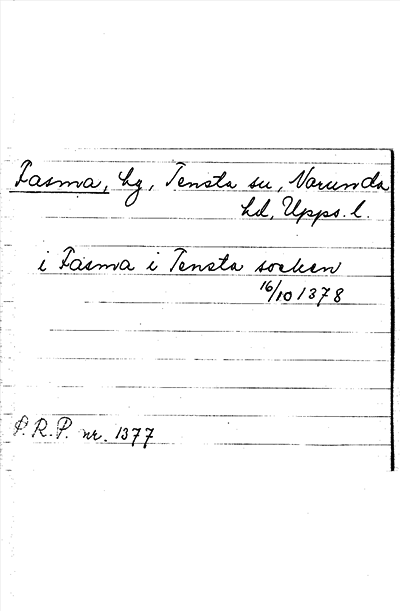 Fasma, by, Tensta sn, Norunda
hd, Upps. l.
i Fasma i Tensta socken
16/10 1378
P.R.P. nr. 1377